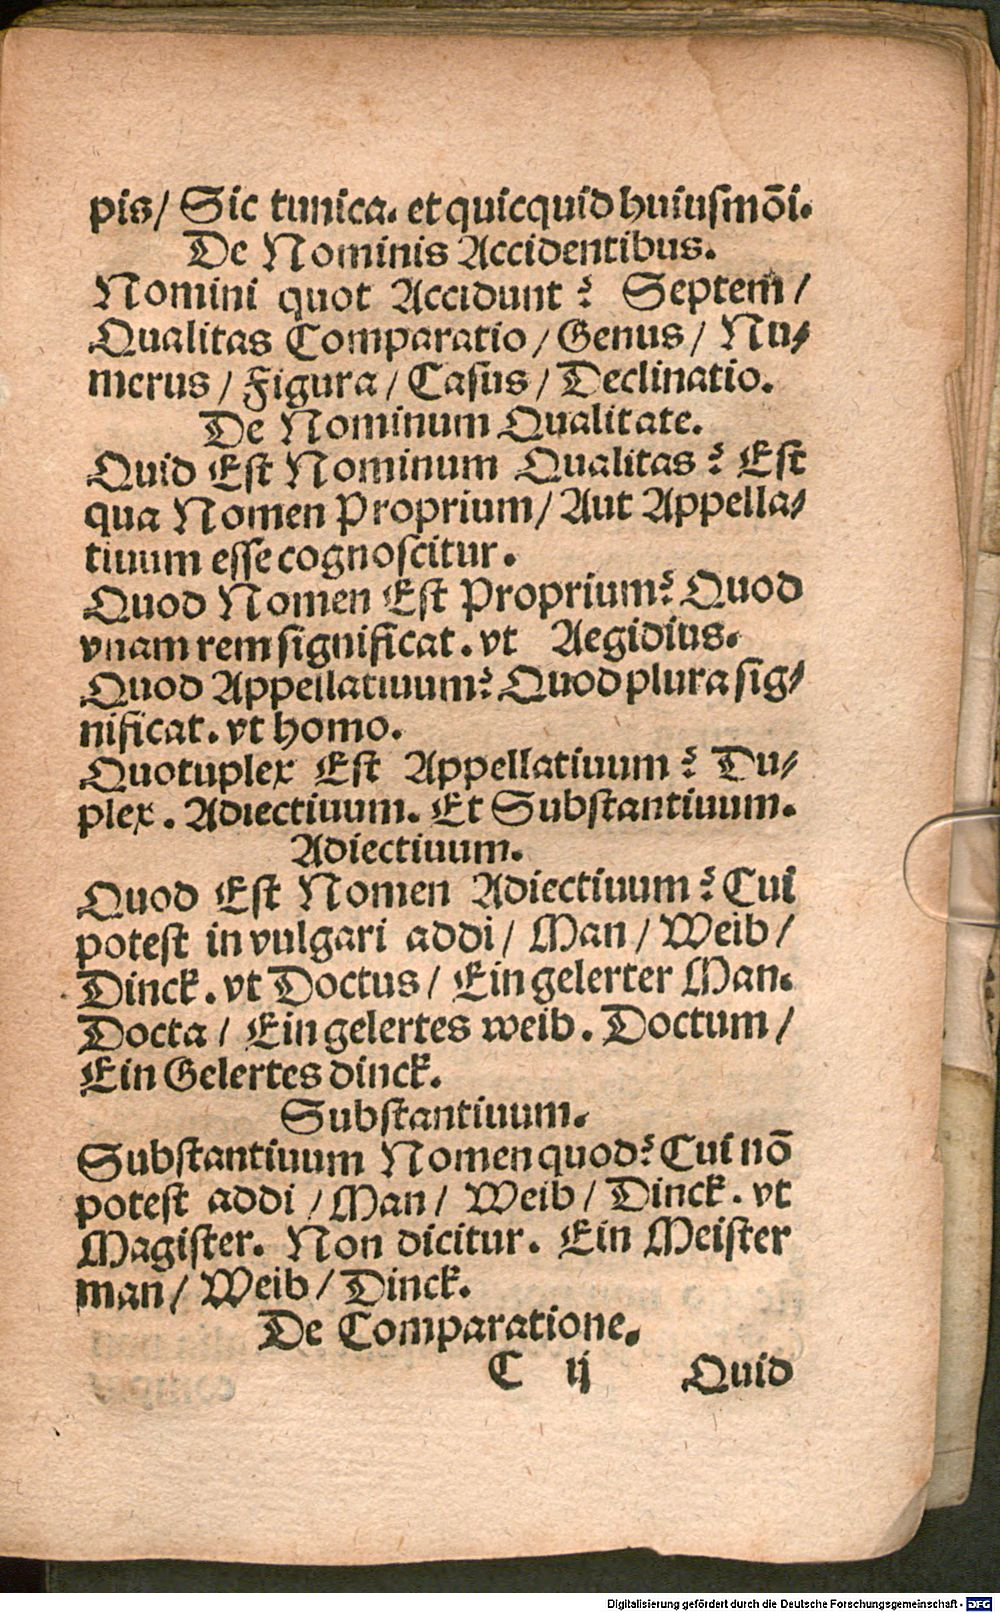 pis/ Sic tunica. et quicquid huiusmōi.
De Nominis Accidentibus.
Nomini quot Accidunt? Septem/
Qualitas Comparatio/ Genus/ Nu⸗
merus/ Figura/ Casus/ Declinatio.
De Nominum Qualitate.
Quid Est Nominum Qualitas? Est
qua Nomen Proprium/ Aut Appella⸗
tiuum esse cognoscitur.
Quod Nomen Est Proprium? Quod
vnam rem significat. vt Aegidius.
Quod Appellatiuum? Quod plura sig⸗
nificat. vt homo.
Quotuplex Est Appellatiuum? Du⸗
plex. Adiectiuum. Et Substantiuum.
Adiectiuum.
Quod Est Nomen Adiectiuum? Cui
potest in vulgari addi/ Man/ Weib/
Dinck. vt Doctus/ Ein gelerter Man.
Docta/ Ein gelertes weib. Doctum/
Ein Gelertes dinck.
Substantiuum.
Substantiuum Nomen quod? Cui nō
potest addi/ Man/ Weib/ Dinck. vt
Magister. Non dicitur. Ein Meister
man/ Weib/ Dinck.
De Comparatione.
C ij Quid
Digitalisierung gefördert durch die Deutsche Forschungsgemeinschaft - DFG